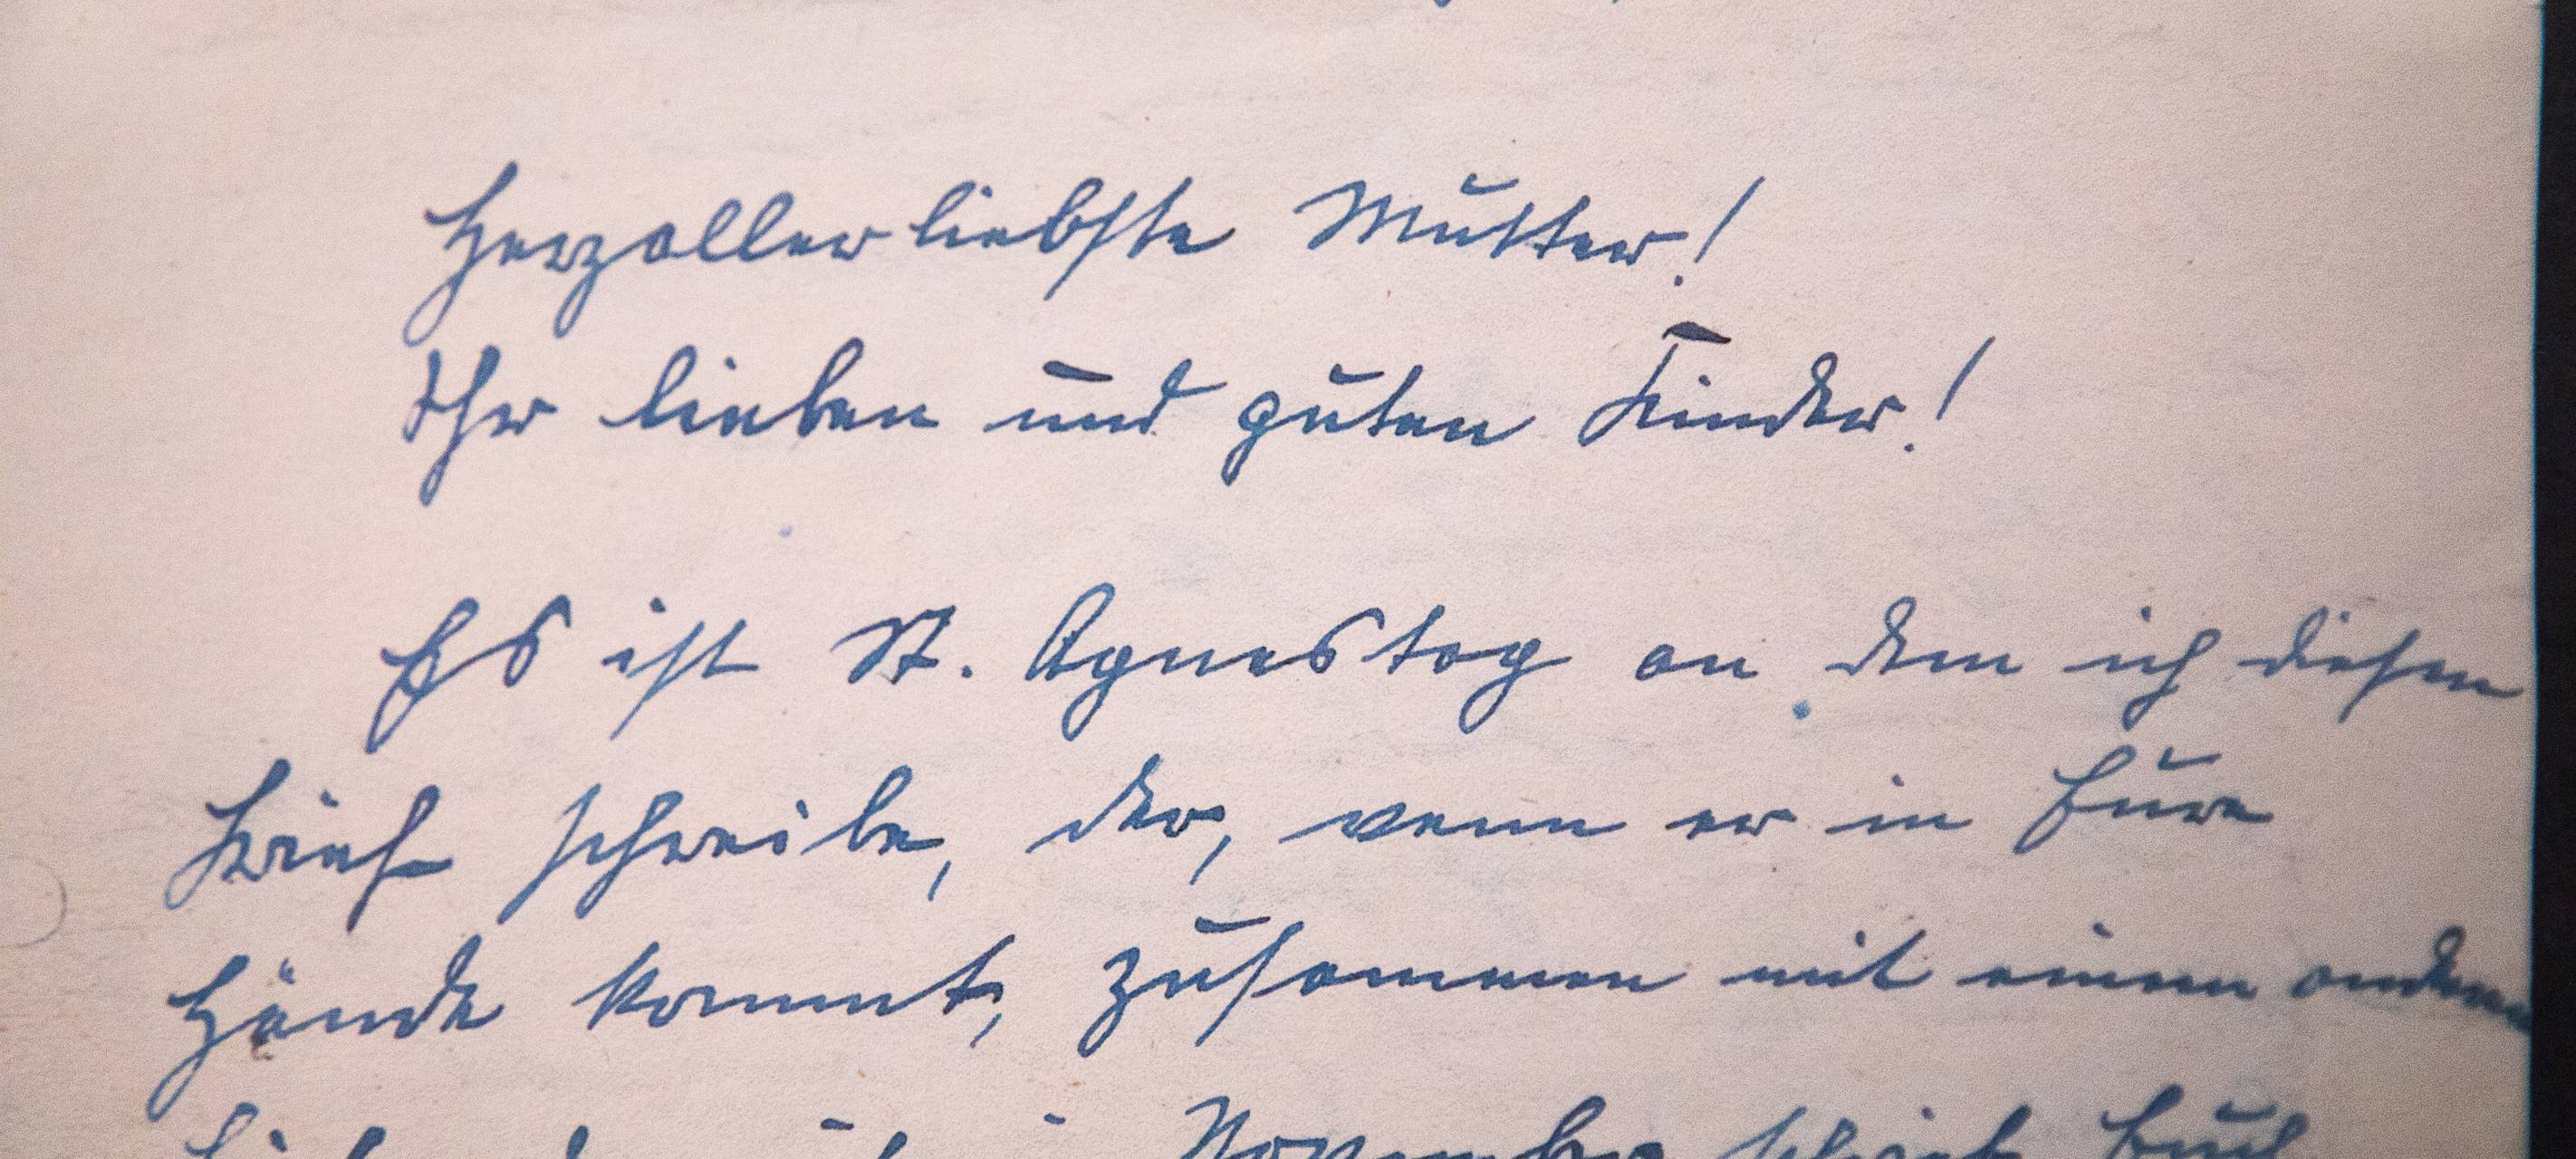 Herzallerliebste Mutter!
Ihr lieben und guten Kinder!
Es ist St. Agnestag an dem ich diesen
Brief schreibe, der, wenn er in Eure
Hände kommt, zusammen mit einem andern
November schrieb Euch